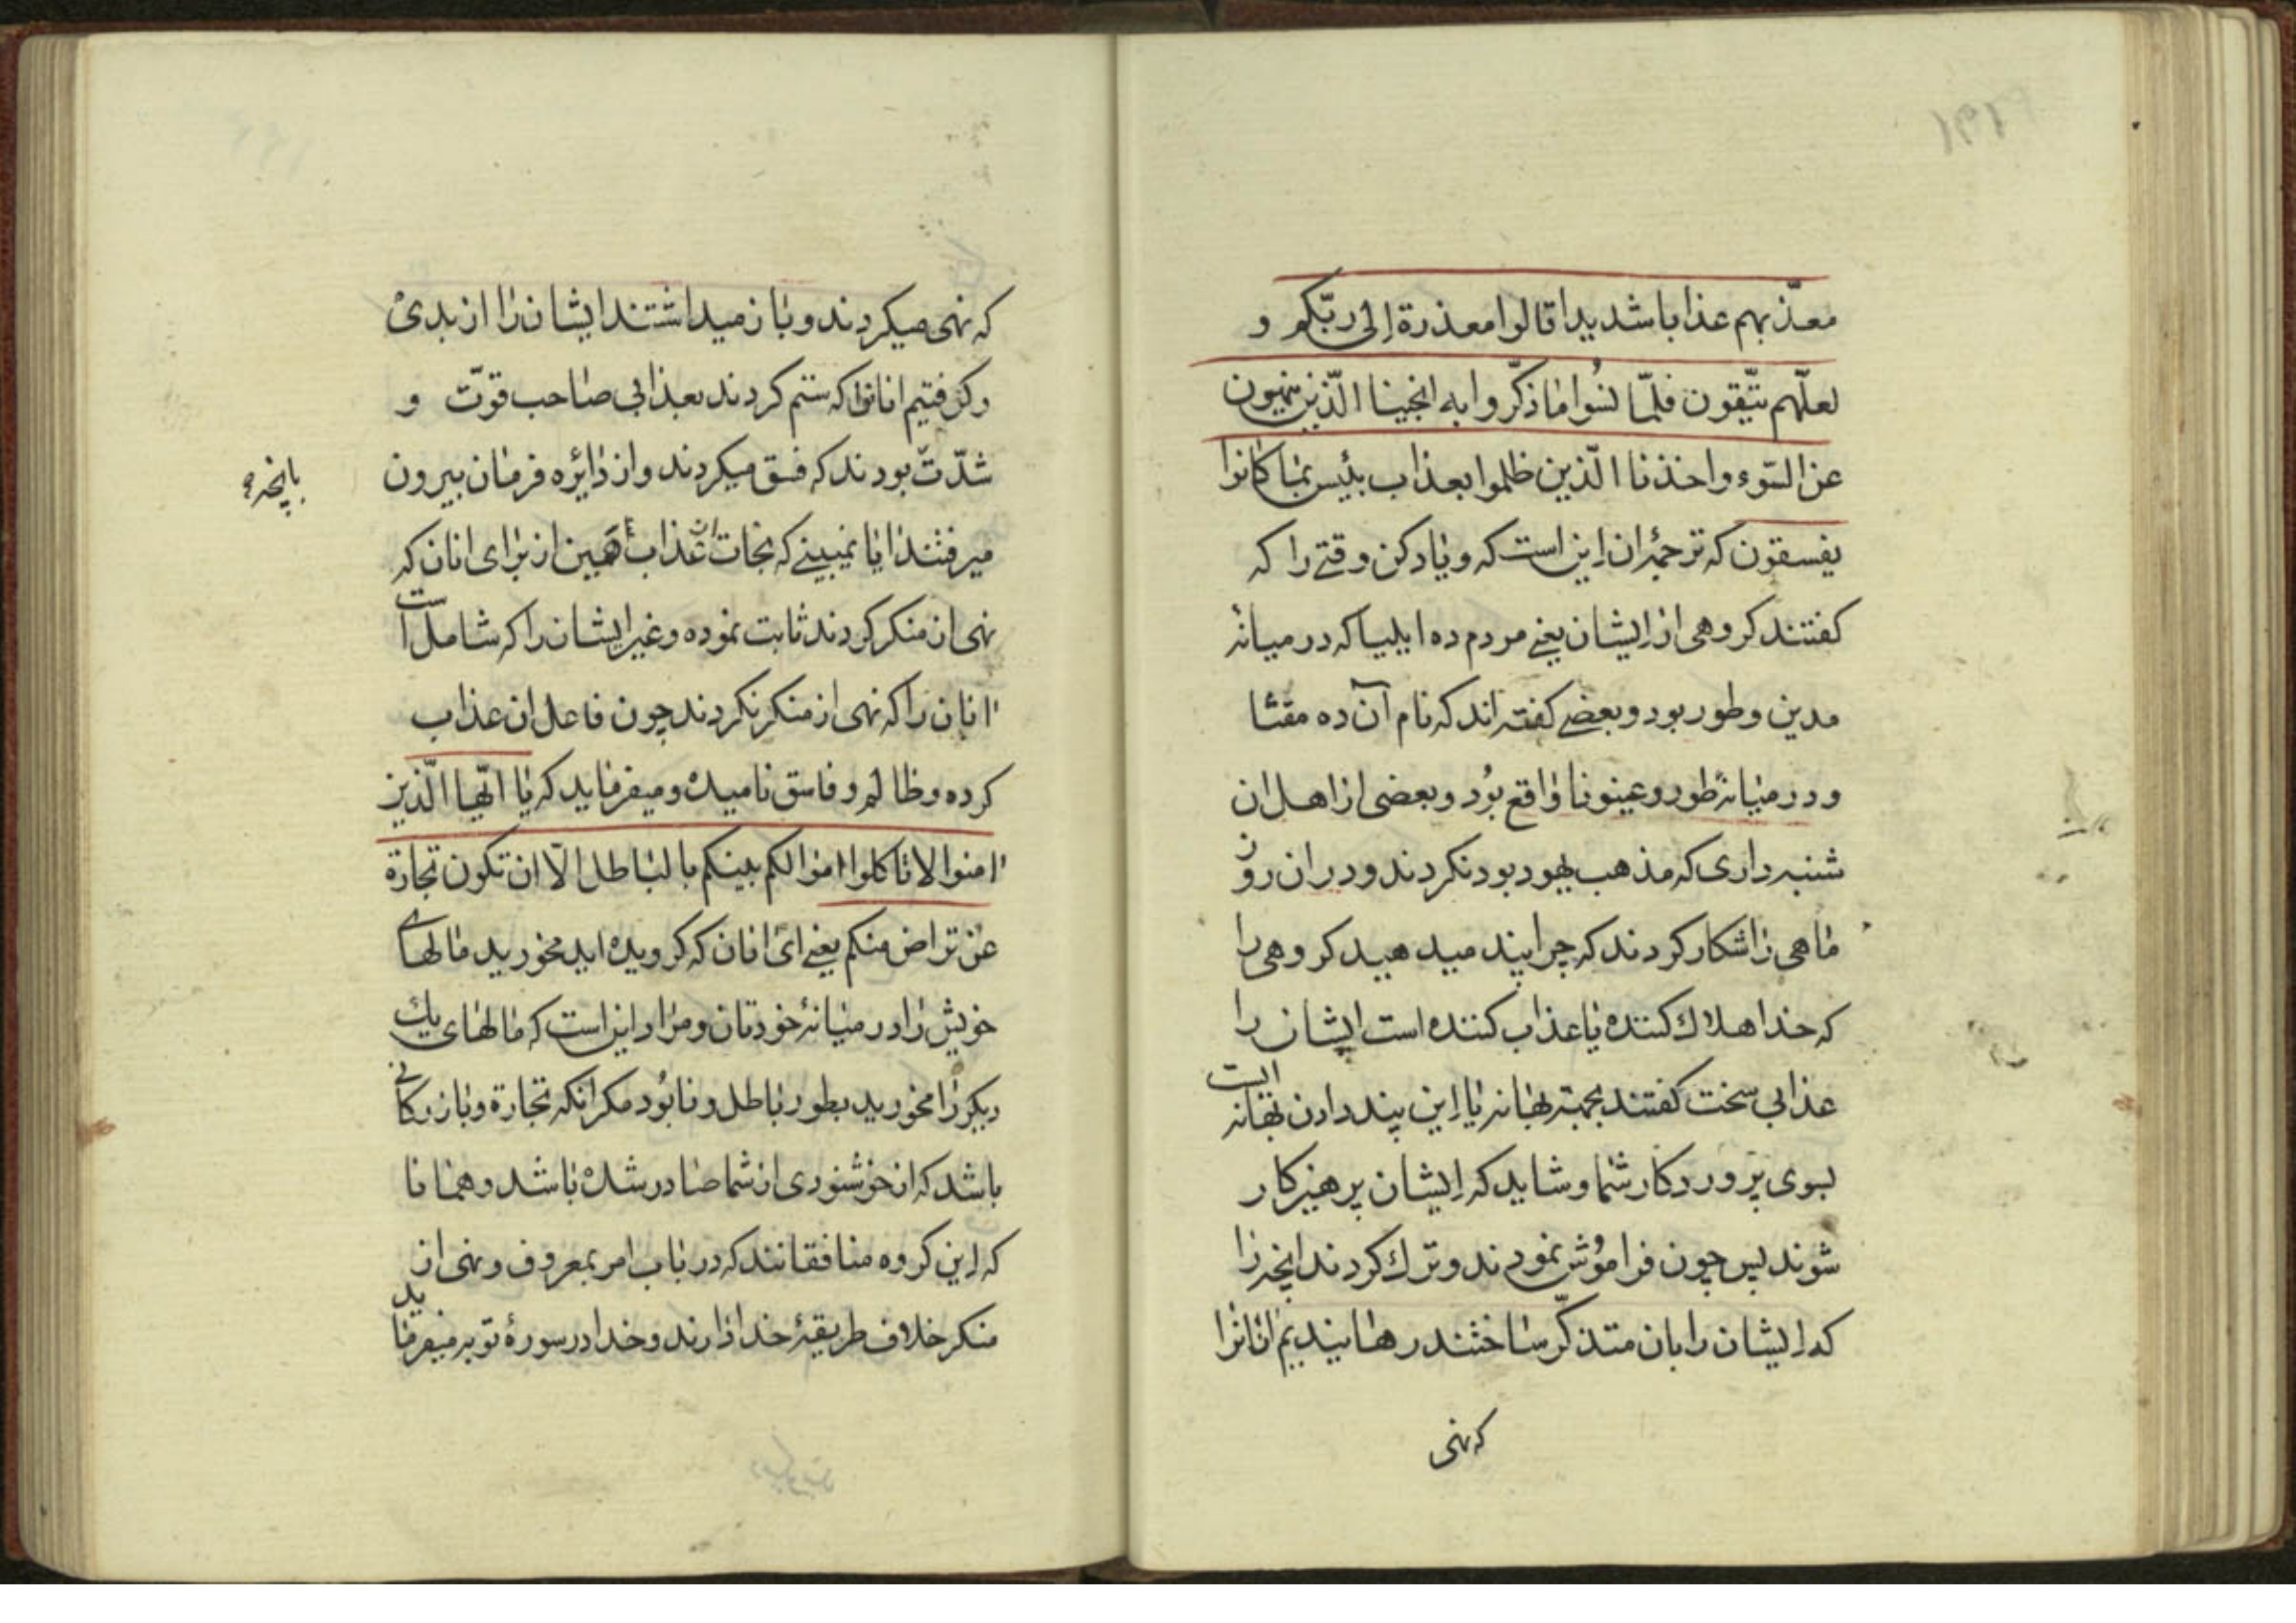 معذّبهم عذابا شدیدا قالوا معذرة إلی ربّکم و
لعلّهم یتّقون فلمّا نسُوا ما ذکّروا به انجینا الّذین ینهون
عن السّوء واخذنا الّذین ظلموا بعذاب بئیس بما کانوا
یفسقون که ترجمهٔ ان این است که و یاد کن وقتے را که
کفتند کروهی از ایشان یعنے مردم ده ایلیا که در میانهٔ
مدین و طور بود و بعضے کفته اند که نام آن ده مقنّا
و در میانهٔ طور و عینونا واقع بُود و بعضی از اهل ان
شنبه داری که مذهب یهود بود نکردند و در ان روز
ماهی را شکار کردند که چرا پند میدهید کروهی را
که خدا هلاك کننده یا عذاب کننده است ایشان را
عذابی سخت کفتند بجهة بهانه یا این پند دادن بهانه ایست
بسوی پروردکار شما و شاید که ایشان پرهیزکار
شوند پس چون فراموُش نمودند و ترك کردند انچه را
که ایشان را بان متذکّر ساختند رهانیدیم انانرا
که نهی
که نهی میکردند و باز میداشتند ایشان را از بدیْ
و کرفتیم انانرا که ستم کردند بعذابی صاحب قوّت و
شدّت بودند که فسق میکردند و از دایره فرمان بیرون
بانچه
میرفتند ایا نمیبینے که نجات از عذاب را همین از برای انان که
نهی از منکر کردند ثابت نموده و غیر ایشان را که شامل است
انان را که نهی از منکر نکردند چون فاعل ان عذاب
کرده و ظالم و فاسق نامیده و میفرماید که یا ایّها الّذین
امنوا لا تاکلوا اموالکم بینکم بالباطل الّا ان تکون تجارة
عن تراض منکم یعنے ای انان که کرویده اید مخورید مالهاے
خویش را در میانهٔ خودتان و مراد این است که مالهای یك
دیکر را مخورید بطور باطل و نابُود مکر انکه تجارة و بازرکانے
باشد که از خوشنودی از شما صادر شده باشد و همانا
که این کروه منافقانند که در باب امر بمعروف و نهی از
منکر خلاف طریقهٔ خدا دارند و خدا در سورهٔ توبه میفرماید